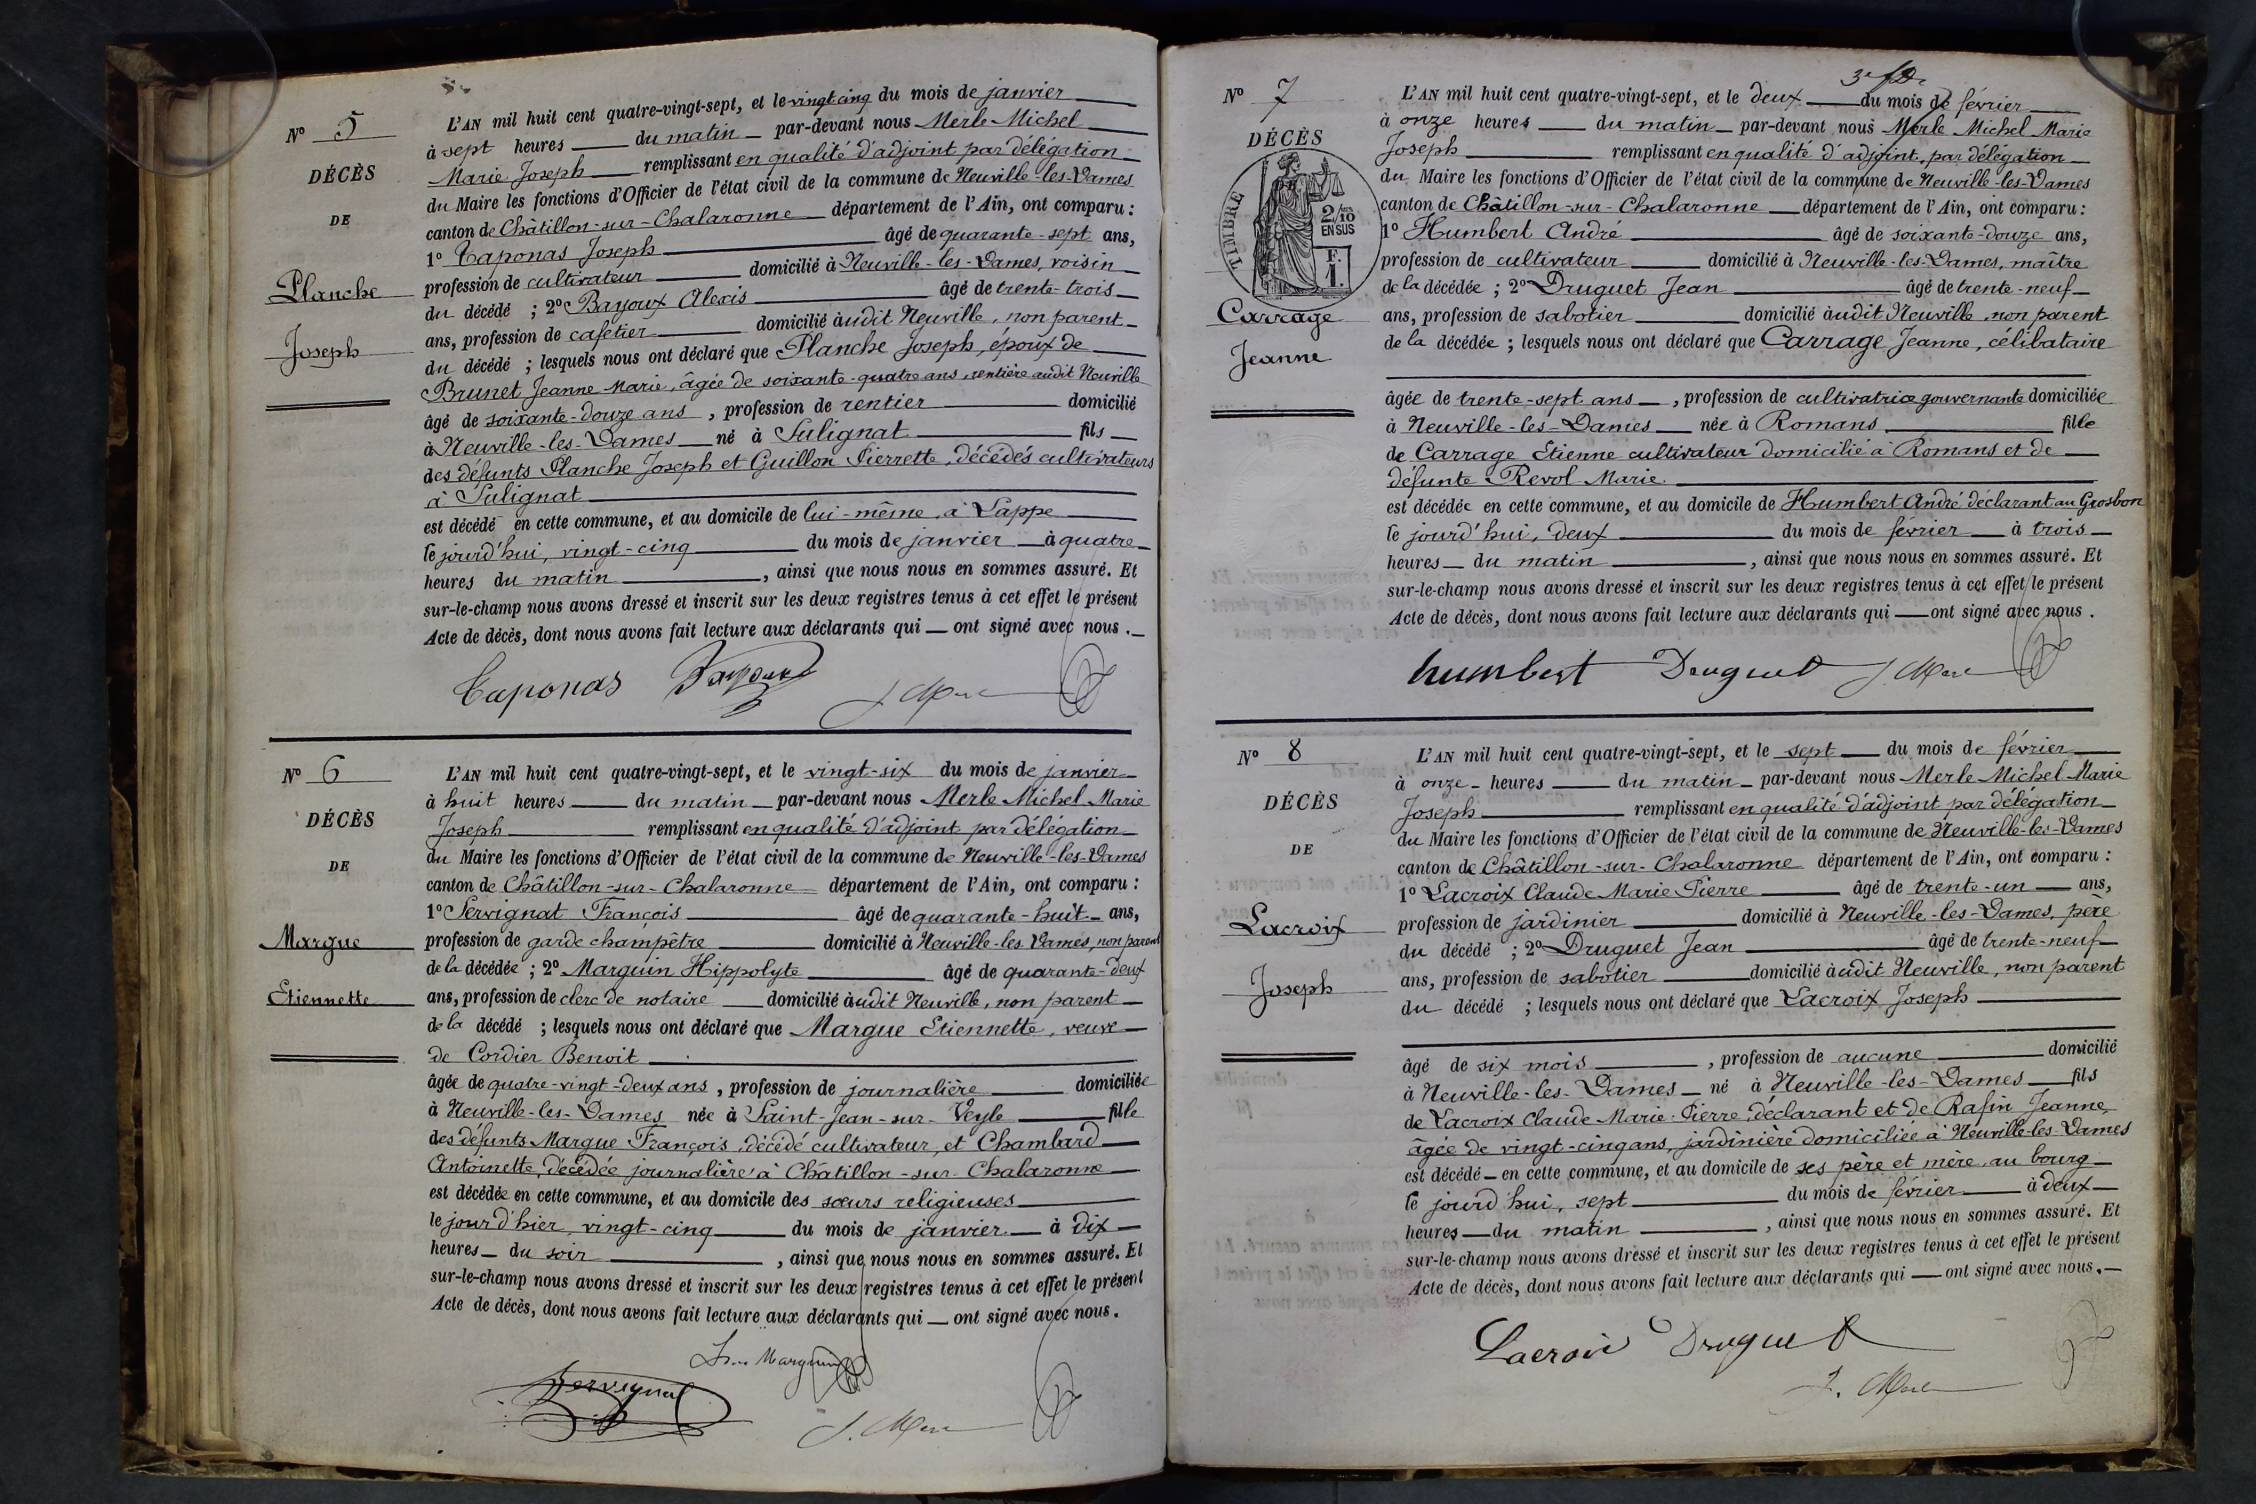 N° 5
DÉCÈS
DE
Planche
Joseph
L'AN mil huit cent quatre-vingt-sept, et le vingt cinq du mois de janvier
à sept heures du matin par-devant nous Merle Michel
Marie Joseph remplissant en qualité d'adjoint par délégation
du Maire les fonctions d'Officier de l'état civil de la commune de Neuville-les-Dames
canton de Châtillon-sur-Chalaronne département de l'Ain, ont comparu :
1° Taponas Joseph âgé de quarante-sept ans,
profession de cultivateur domicilié à Neuville-les-Dames, voisin
du décédé ; 2° Bayoux Alexis âgé de trente-trois
ans, profession de cafetier domicilié à udit Neuville, non parent
du décédé ; lesquels nous ont déclaré que Planche Joseph, époux de
Brunet Jeanne Marie, âgée de soixante-quatre ans, rentière audit Neuville
âgé de soixante-douze ans, profession de rentier domicilié
à Neuville-les-Dames né à Sulignat fils
des défunts Planche Joseph et Guillon Pierrette, décédés cultivateurs
à Sulignat
est décédé en cette commune, et au domicile de lui-même, à Lappe
le jourd'hui, vingt-cinq du mois de janvier à quatre
heures du matin, ainsi que nous nous en sommes assuré. Et
sur-le-champ nous avons dressé et inscrit sur les deux registres tenus à cet effet le présent
Acte de décès, dont nous avons fait lecture aux déclarants qui ont signé avec nous.
Taponas
N° 6
DÉCÈS
DE
Margue
Etiennette
L'AN mil huit cent quatre-vingt-sept, et le vingt-six du mois de janvier
à huit heures du matin par-devant nous Merle Michel Marie
Joseph remplissant en qualité d'adjoint par délégation
du Maire les fonctions d'Officier de l'état civil de la commune de Neuville-les-Dames
canton de Châtillon-sur-Chalaronne département de l'Ain, ont comparu :
1° Servignat François âgé de quarante-huit ans,
profession de garde champêtre domicilié à Neuville-les-Dames, non parent
de la décédée ; 2° Marguin Hippolyte âgé de quarante-deux
ans, profession de clerc de notaire domicilié à udit Neuville, non parent
de la décédé ; lesquels nous ont déclaré que Margue Etiennette, veuve
de Cordier Benoit
âgée de quatre-vingt-deux ans, profession de journalière domiciliée
à Neuville-les-Dames née à Saint-Jean-sur-Veyle fille
des défunts Margue François, décédé cultivateur, et Chambard
Antoinette, décédée journalière à Châtillon-sur-Chalaronne
est décédée en cette commune, et au domicile des sœurs religieuses
le jour d'hier, vingt-cinq du mois de janvier à dix
heures du soir, ainsi que nous nous en sommes assuré. Et
sur-le-champ nous avons dressé et inscrit sur les deux registres tenus à cet effet le présent
Acte de décès, dont nous avons fait lecture aux déclarants qui ont signé avec nous.
Marguin
Servignat
N° 7
DÉCÈS
TIMBRE
2/10
EN SUS
F.
1.
Carrage
Jeanne
L'AN mil huit cent quatre-vingt-sept, et le deux du mois de février
à onze heures du matin par-devant nous Merle Michel Marie
Joseph remplissant en qualité d'adjoint, par délégation
du Maire les fonctions d'Officier de l'état civil de la commune de Neuville-les-Dames
canton de Châtillon-sur-Chalaronne département de l'Ain, ont comparu :
1° Humbert André âgé de soixante-douze ans,
profession de cultivateur domicilié à Neuville-les-Dames, maître
de la décédée ; 2° Druguet Jean âgé de trente-neuf
ans, profession de sabotier domicilié à udit Neuville, non parent
de la décédée ; lesquels nous ont déclaré que Carrage Jeanne, célibataire
âgée de trente-sept ans, profession de cultivatrice gouvernante domiciliée
à Neuville-les-Dames née à Romans fille
de Carrage Etienne cultivateur domicilié à Romans et de
défunte Revol Marie.
est décédée en cette commune, et au domicile de Humbert André déclarant au Grosbon
le jourd'hui, deux du mois de février à trois
heures du matin, ainsi que nous nous en sommes assuré. Et
sur-le-champ nous avons dressé et inscrit sur les deux registres tenus à cet effet le présent
Acte de décès, dont nous avons fait lecture aux déclarants qui ont signé avec nous.
humbert Druguet
N° 8
DÉCÈS
DE
Lacroix
Joseph
L'AN mil huit cent quatre-vingt-sept, et le sept du mois de février
à onze heures du matin par-devant nous Merle Michel Marie
Joseph remplissant en qualité d'adjoint par délégation
du Maire les fonctions d'Officier de l'état civil de la commune de Neuville-les-Dames
canton de Châtillon-sur-Chalaronne département de l'Ain, ont comparu :
1° Lacroix Claude Marie Pierre âgé de trente-un ans,
profession de jardinier domicilié à Neuville-les-Dames, père
du décédé ; 2° Druguet Jean âgé de trente-neuf
ans, profession de sabotier domicilié à udit Neuville, non parent
du décédé ; lesquels nous ont déclaré que Lacroix Joseph
âgé de six mois, profession de aucune domicilié
à Neuville-les-Dames né à Neuville-les-Dames fils
de Lacroix Claude Marie-Pierre déclarant et de Rafin Jeanne,
âgée de vingt-cinq ans, jardinière domiciliée à Neuville-les-Dames
est décédé en cette commune, et au domicile de ses père et mère au bourg
le jourd'hui, sept du mois de février à deux
heures du matin, ainsi que nous nous en sommes assuré. Et
sur-le-champ nous avons dressé et inscrit sur les deux registres tenus à cet effet le présent
Acte de décès, dont nous avons fait lecture aux déclarants qui ont signé avec nous.
Lacroix Druguet